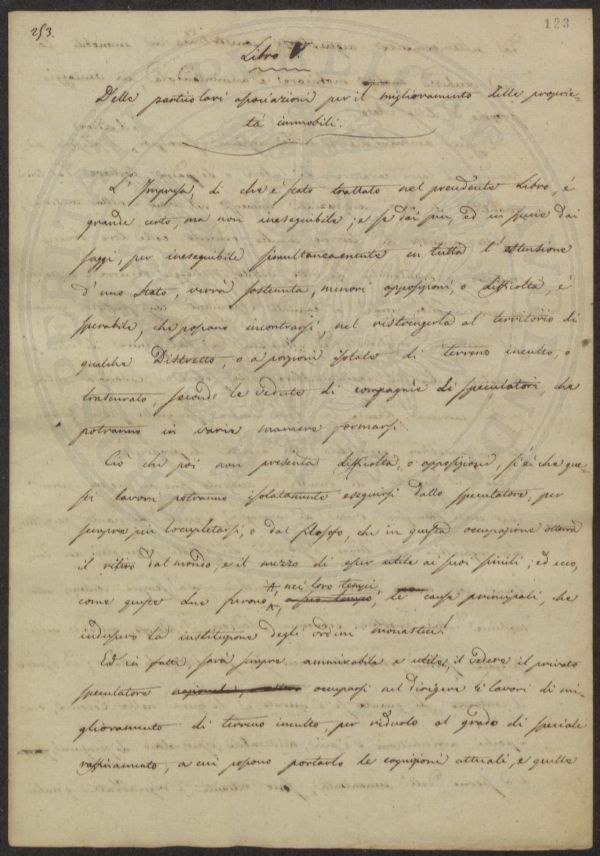 253.
123
Libro V.
Delle particolari associazioni per il miglioramento delle proprie-
tà immobili.
L'Impresa, di che è stato trattato nel precedente Libro, è
grande certo, ma non ineseguibile; e se dai più, ed in specie dai
saggi, per ineseguibile simultaneamente in tutta l'estensione
d'uno Stato, verrà sostenuta, minori opposizioni, o difficoltà, è
sperabile, che possano incontrarsi, nel ristringerla al territorio di
qualche Distretto, o a porzioni isolate di terreno inculto, o
trascurato secondo le vedute di compagnie di speculatori, che
potranno in varie maniere formarsi.
Ciò che poi non presenta difficoltà, o opposizioni, si è che que-
sti lavori potranno isolatamente eseguirsi dallo speculatore, per
sempre più locupletarsi, o dal filosofo, che in questa occupazione
il ritiro dal mondo, e il mezzo di esser utile ai suoi simili; ed ecco,
nei loro tempi
come queste due furono, a suo tempo, le cause principali, che
indussero la instituzione degli ordini monastici!
Ed in fatti, sarà sempre ammirabile e utile, il vedere il privato
speculatore occuparsi nel dirigere i lavori di mi-
glioramento di terreno inculto, per ridurlo al grado di speciale
raffinamento, a cui possono portarlo le cognizioni attuali, e quelle